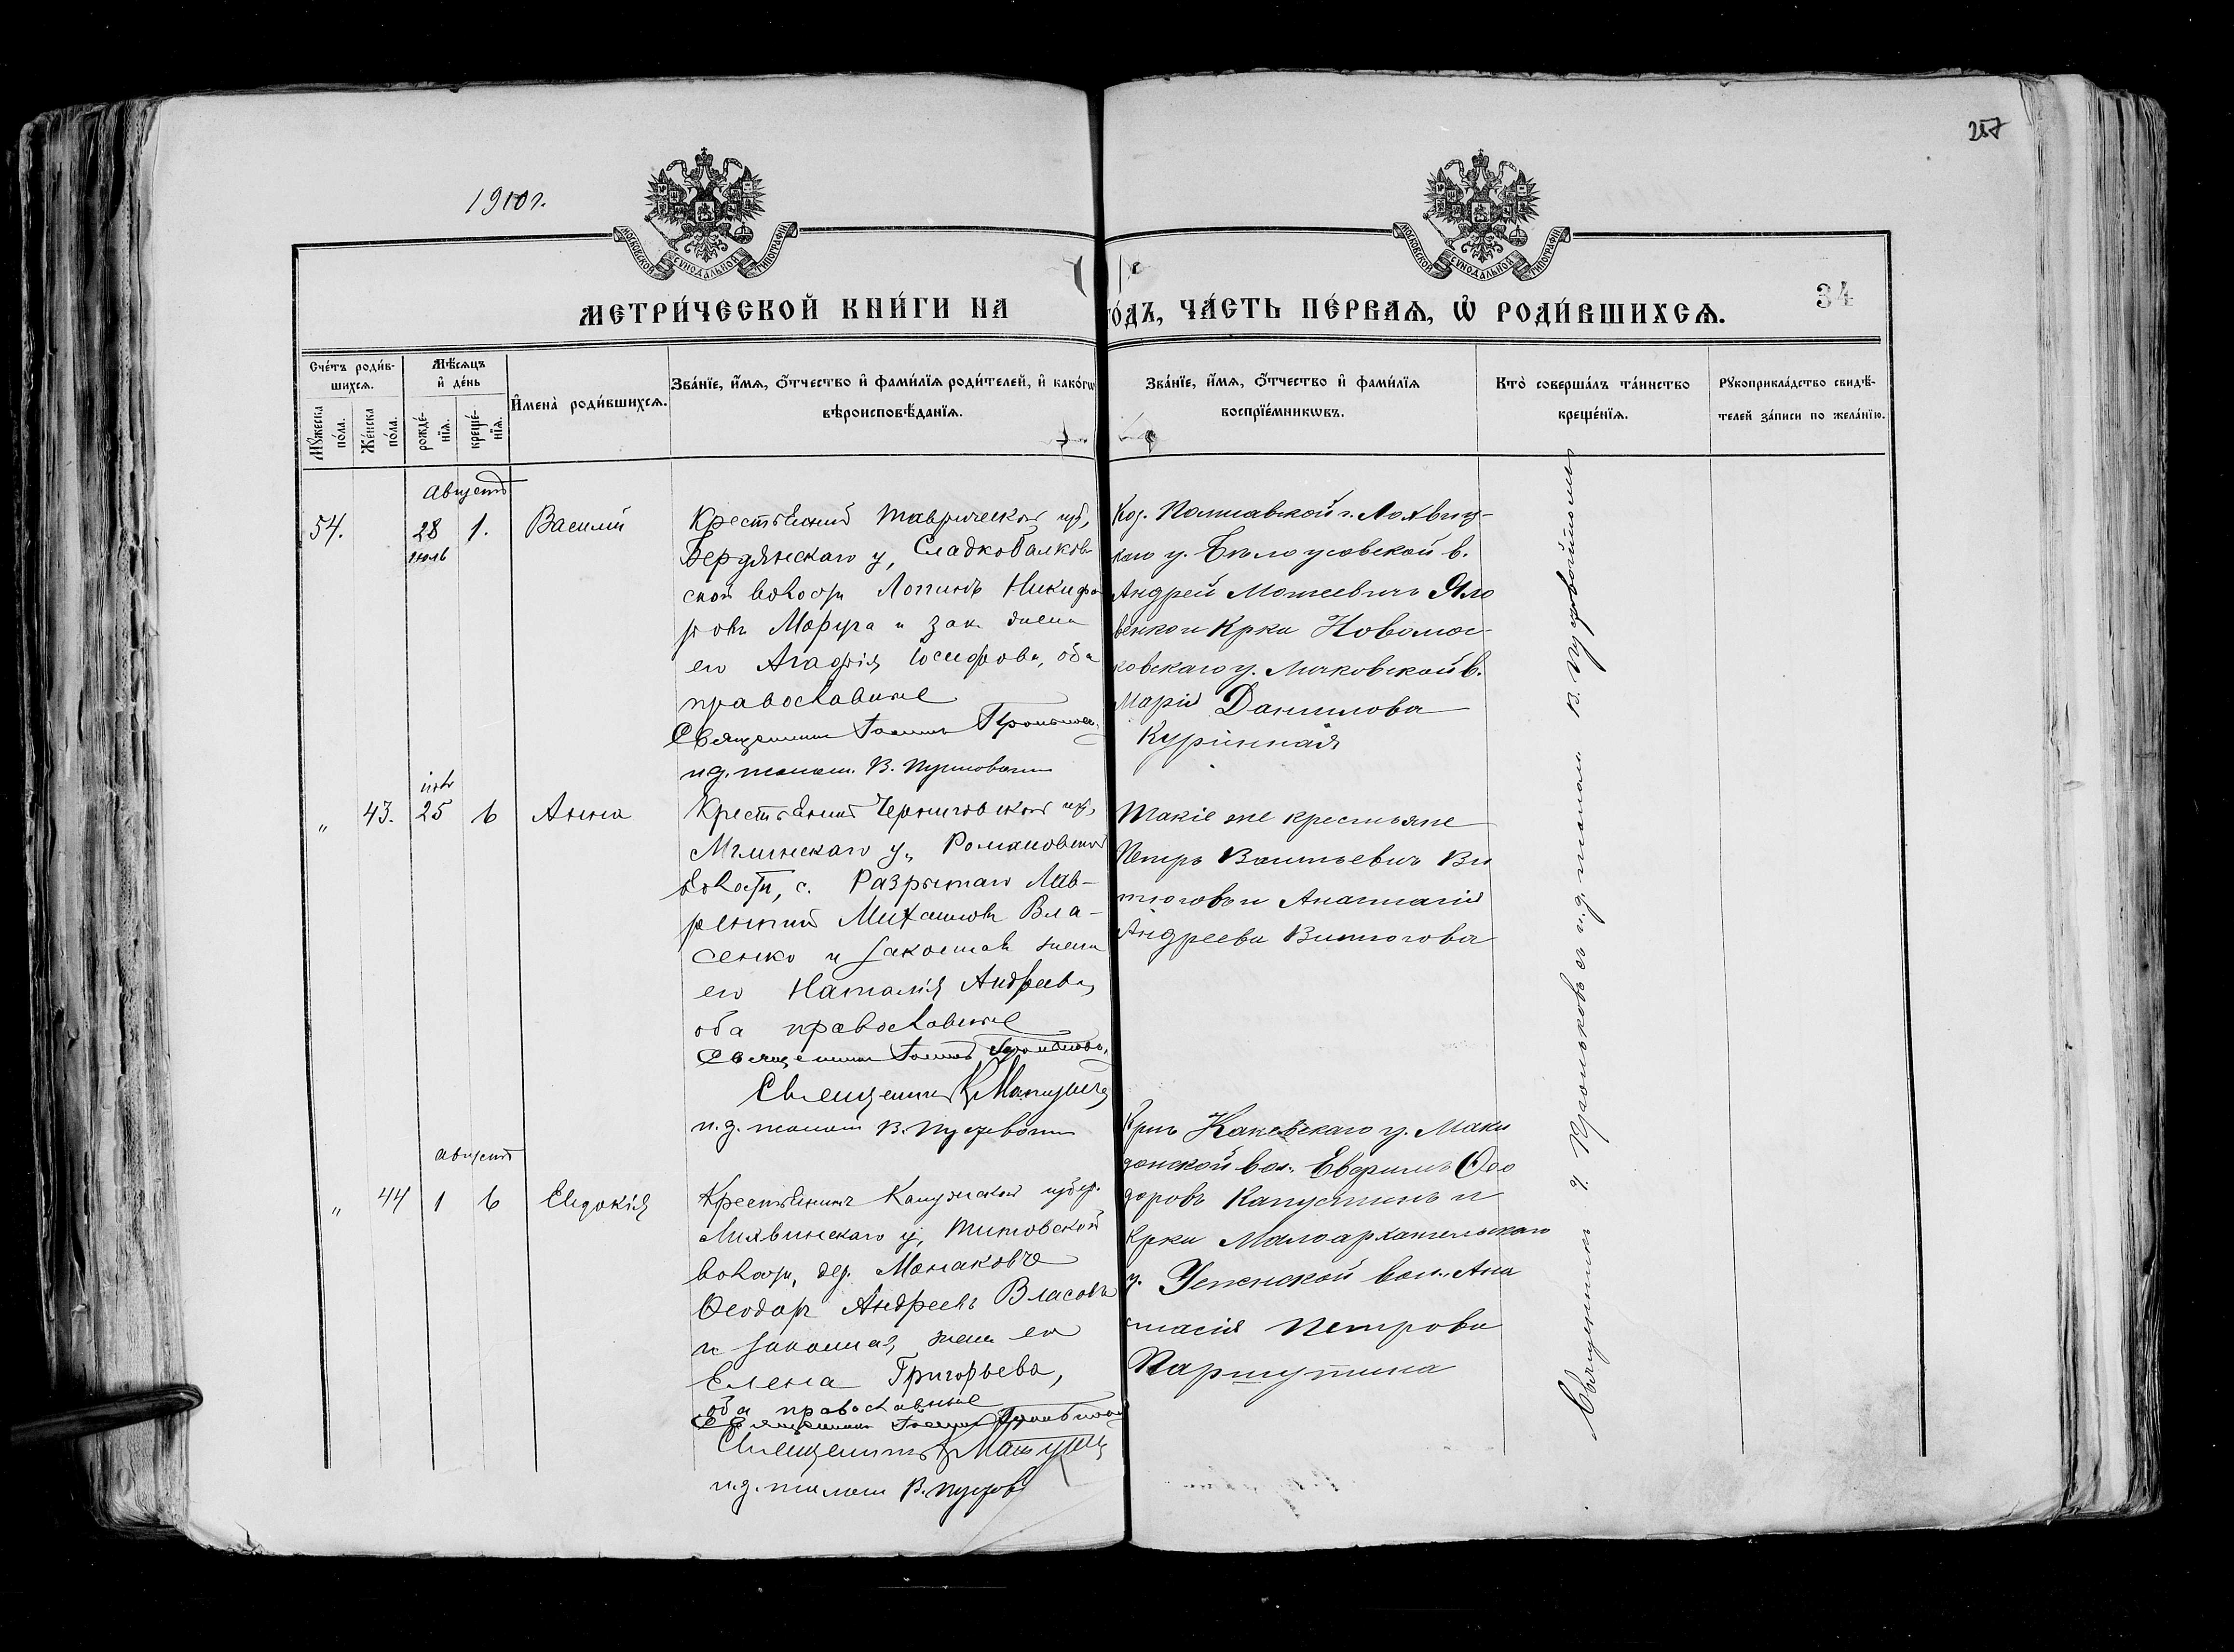 257
1910 г.
МОСКОВСКОЙ СѴНОДАЛЬНОЙ ТИПОГРАФІИ
МОСКОВСКОЙ СѴНОДАЛЬНОЙ ТИПОГРАФІИ
34
МЕТРИ́ЧЕСКОЙ КНИ́ГИ НА
ГО́ДЪ, ЧА́СТЬ ПЕ́РВАѦ, Ѡ҆ РОДИ́ВШИХСѦ.
Сче́тъ роди́в-
шихсѧ.
Мꙋ́жеска по́ла.
Же́нска по́ла.
Мѣ́сѧцъ
и҆ де́нь
рожде́-
нїѧ.
креще́-
нїѧ.
И҆мена̀ роди́вшихсѧ.
Зва́нїе, и҆́мѧ, ѻ҆́тчество и҆ фами́лїѧ роди́телей, и҆ како́гѡ
вѣроисповѣ́данїѧ.
Зва́нїе, и҆́мѧ, ѻ҆́тчество и҆ фами́лїѧ
воспрїе́мникѡвъ.
Кто̀ соверша́лъ та́инство
креще́нїѧ.
Рꙋкоприкла́дство свидѣ́-
телей за́писи по жела́нїю.
Августъ
54.
28
июль
1.
Василій
Крестьянинъ Таврической губ,
Бердянскаго у, Сладкобалков-
ской волости Логинъ Никифо
ровъ и зак. жена
его Агафія Іосифова, оба
православные
Священникъ Іоаннъ
и.д. псалом. В.
Коз. Полтавской г. Лохвиц-
каго у. Бѣлоусовской в.
Андрей Мотеевичъ Яло
венко и Крка Новомос-
ковскаго у. Личковской в.
Марія Данилова
Курінная
"
43.
25
6
Анна
Крестьянинъ Черниговской губ,
Мглинскаго у, Романовской
волости, с. Разрытаго Лав-
рентій Михаиловъ Вла-
сенко и законная жена
его Наталія Андреева,
оба православные
Священникъ Іоаннъ
Священникъ
и.д. псалом В.
Такіе же крестьяне
Петръ Васильевич Ви
тюгов и Анастасія
Андреева Витюгова
Августъ
"
44
1
6
Евдокія
Крестьянинъ Калужской губер.
Лихвинскаго у, Титовской
волости, дер. Манаково
Ѳеодоръ Андреевъ Власовъ
и законная жена его
Елена Григорьева,
оба православные
Священникъ Іоаннъ
Священникъ
и.д. псалом В.
Крнъ Каневскаго у. Маки
донской вол. Евфимъ Ѳео
доровъ Капустинъ и
Крка Малоархангельскаго
у. Успенской вол. Ана
стасія Петрова
Паршутина
Священникъ І. съ и.д. псалом В.